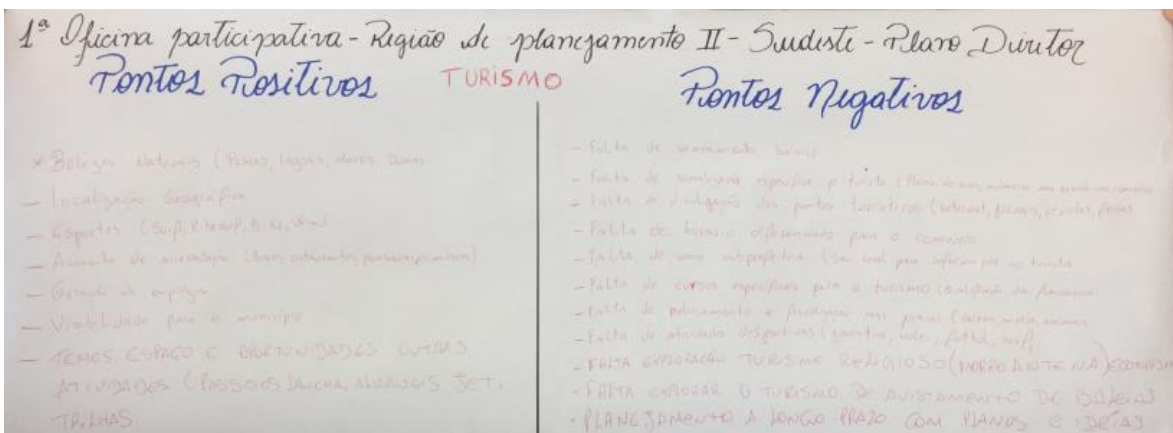 1ª Oficina participativa - Região de planejamento II - Sudeste - Plano Diretor
Pontos Positivos
TURISMO
Pontos Negativos
Belezas Naturais (Praias, Lagoas, Morros, Dunas
- Localização Geográfica
- Esportes (Sup, Kitesurf, Bike, Wind
- Aumento de arrecadação
- Geração de empregos
- Visibilidade para o município
- TEMOS ESPAÇO E OPORTUNIDADES OUTRAS
ATIVIDADES (PASSEIOS LANCHA, ALUGUEIS JET,
TRILHAS
- Falta de saneamento básico
- Falta de sinalização específica p/ turista
- Falta de divulgação dos pontos turísticos (internet, jornais, revistas,
- Falta de horário diferenciado para o comércio
- Falta de uma subprefeitura (Com local para informação ao turista
- Falta de cursos específicos para o turismo
- Falta de policiamento e fiscalização nas praias
- Falta de atividades desportivas
- FALTA EXPLORAÇÃO TURISMO RELIGIOSO (MORRO ANTENA)
- FALTA EXPLORAR O TURISMO DE AVISTAMENTO DE BALEIAS
- PLANEJAMENTO A LONGO PRAZO COM PLANOS E IDEIAS